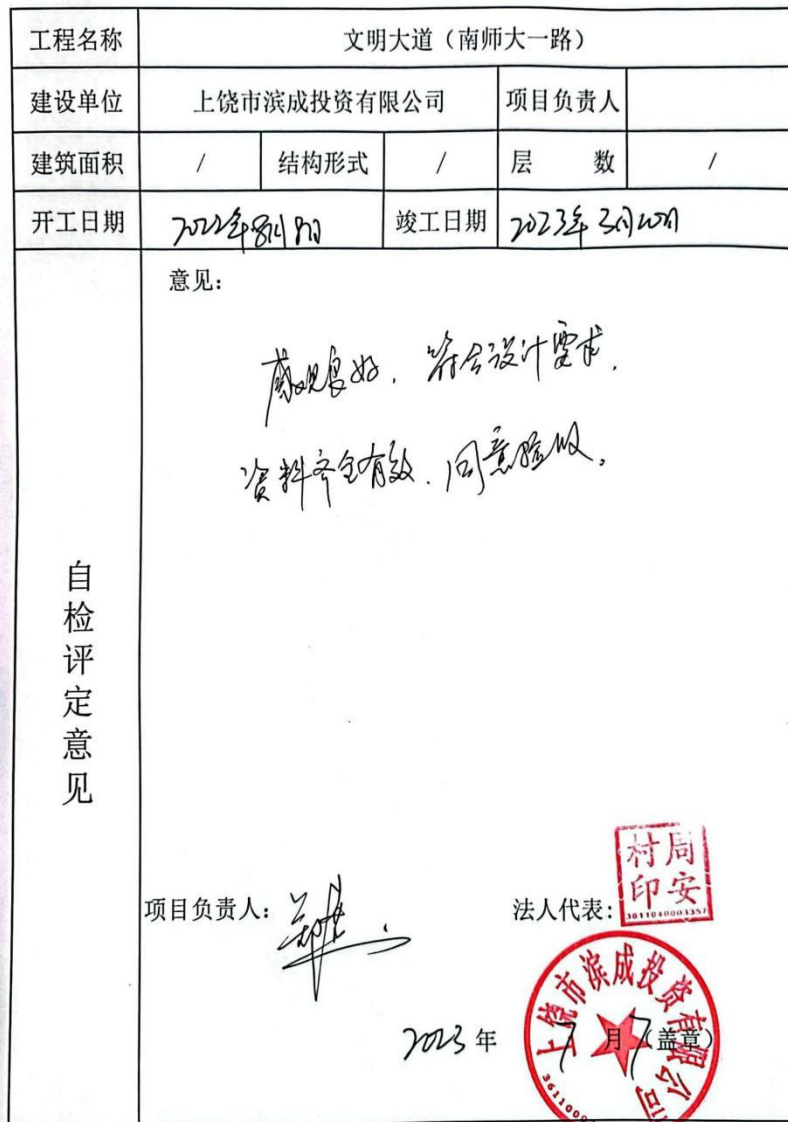 工程名称 文明大道（南师大一路）
建设单位 上饶市滨成投资有限公司 项目负责人
建筑面积 / 结构形式 / 层 数 /
开工日期 2022年8月8日 竣工日期 2023年3月20日
自检评定意见
意见：
感观良好，符合设计要求，
资料齐全有效，同意验收。
项目负责人：
法人代表：
周安村印
3611040003357
上饶市滨成投资有限公司
2023年7月7（盖章）